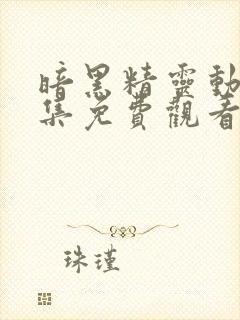 暗黑精靈動
集免費觀看
珠瑾